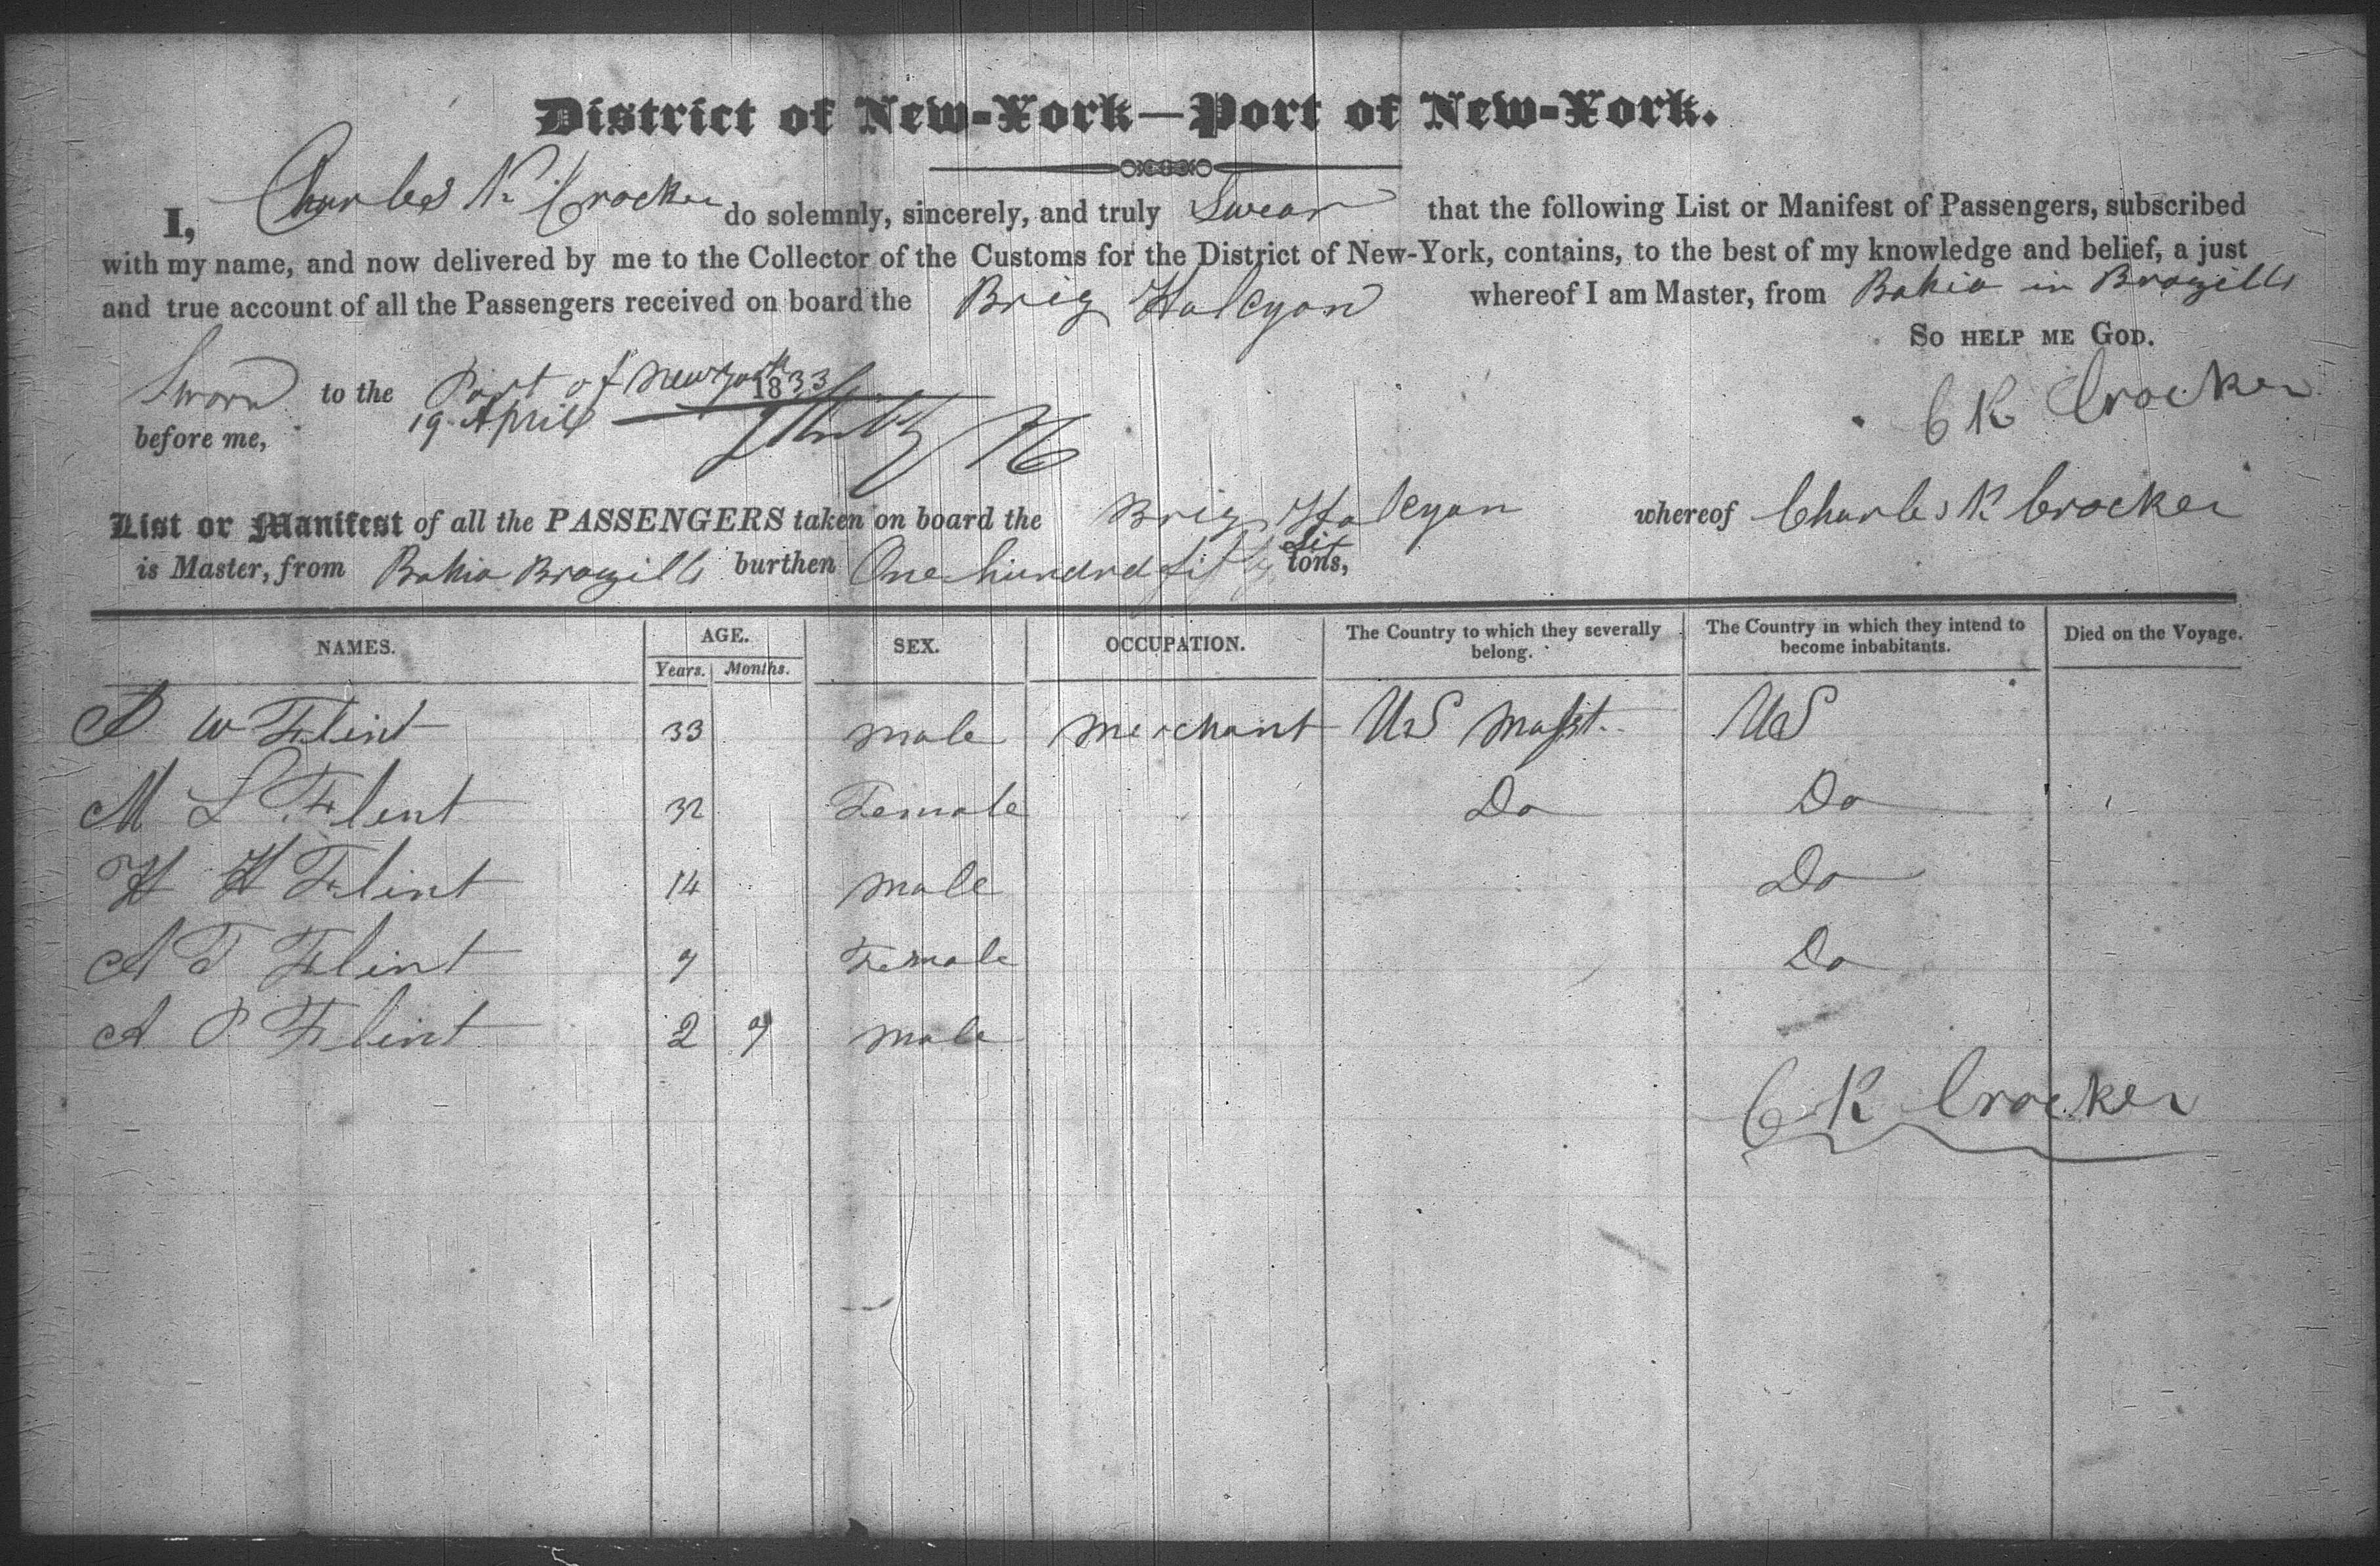 District of New-York—Port of New-York.
I, Charles K. Crocker do solemnly, sincerely, and truly Swear that the following List or Manifest of Passengers, subscribed
with my name, and now delivered by me to the Collector of the Customs for the District of New-York, contains, to the best of my knowledge and belief, a just
and true account of all the Passengers received on board the Brig Halcyon whereof I am Master, from Bahia in Brazills
So help me God.
Sworn to the Port of New York 1833 C K Crocker
before me, 19 April
List or Manifest of all the PASSENGERS taken on board the Brig Halcyon whereof Charles K Crocker
is Master, from Bahia Brazills burthen One hundred fifty Six tons,
NAMES. AGE. SEX. OCCUPATION. The Country to which they severally belong. The Country in which they intend to become inhabitants. Died on the Voyage.
Years. Months.
W Flint 33 male merchant US Masst. US
M L Flint 32 Female Do Do
H H Flint 14 male Do
A T Flint 9 Female Do
A P Flint 2 9 male
C K Crocker